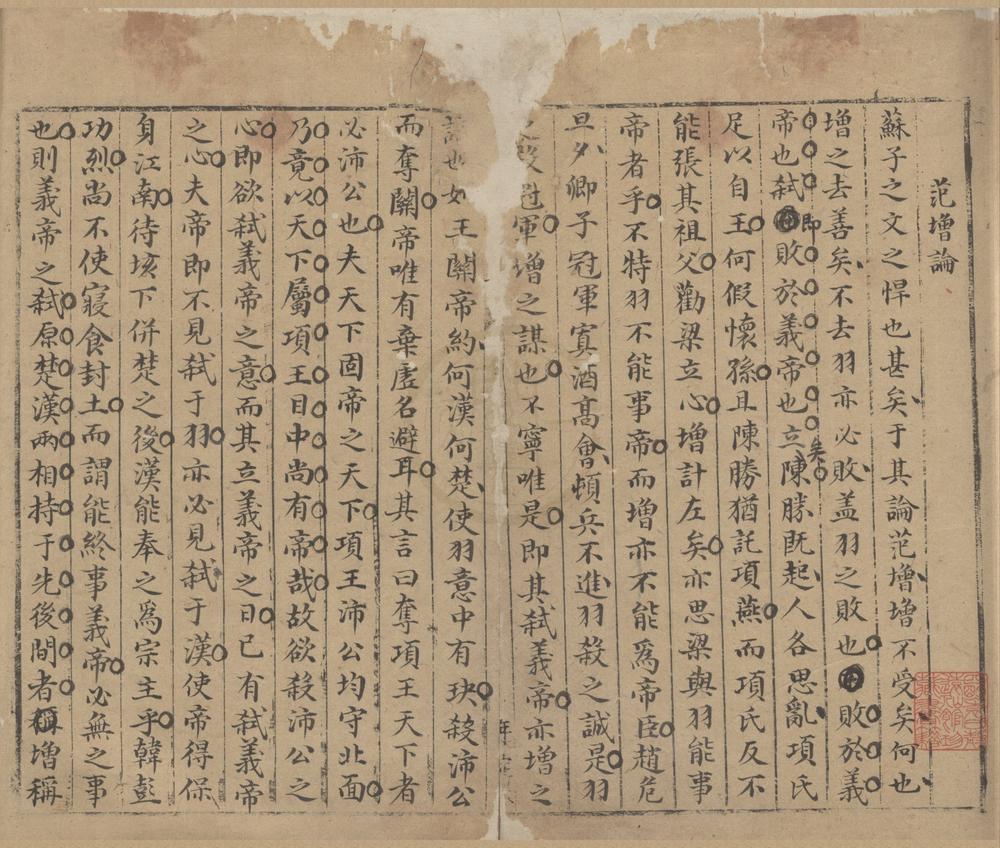 范增論
蘇子之文之悍也甚矣于其論范增增不受矣何也
增之去善矣不去羽亦必敗盖羽之敗也敗於義
帝也弑即敗於義帝也立矣陳勝既起人各思亂項氏
足以自王何假懷孫且陳勝猶託項燕而項氏反不
能張其祖父勸梁立心增計左矣亦思梁與羽能事
帝者乎不特羽不能事帝而增亦不能爲帝臣趙危
旦夕卿子冠軍寘酒髙會頓兵不進羽殺之誠是羽
冠軍增之謀也不寧唯是即其弑義帝亦增之
也如王關帝約何漢何楚使羽意中有玦殺沛公
而奪關帝唯有棄虛名避耳其言曰奪項王天下者
必沛公也夫天下固帝之天下項王沛公均守北面
乃竟以天下屬項王目中尚有帝哉故欲殺沛公之
心即欲弑義帝之意而其立義帝之日已有弑義帝
之心夫帝即不見弑于羽亦必見弑于漢使帝得保
身江南待垓下併楚之後漢能奉之爲宗主乎韓彭
功烈尚不使寢食封土而謂能終事義帝必無之事
也則義帝之弑原楚漢兩相持于先後間者稱增稱